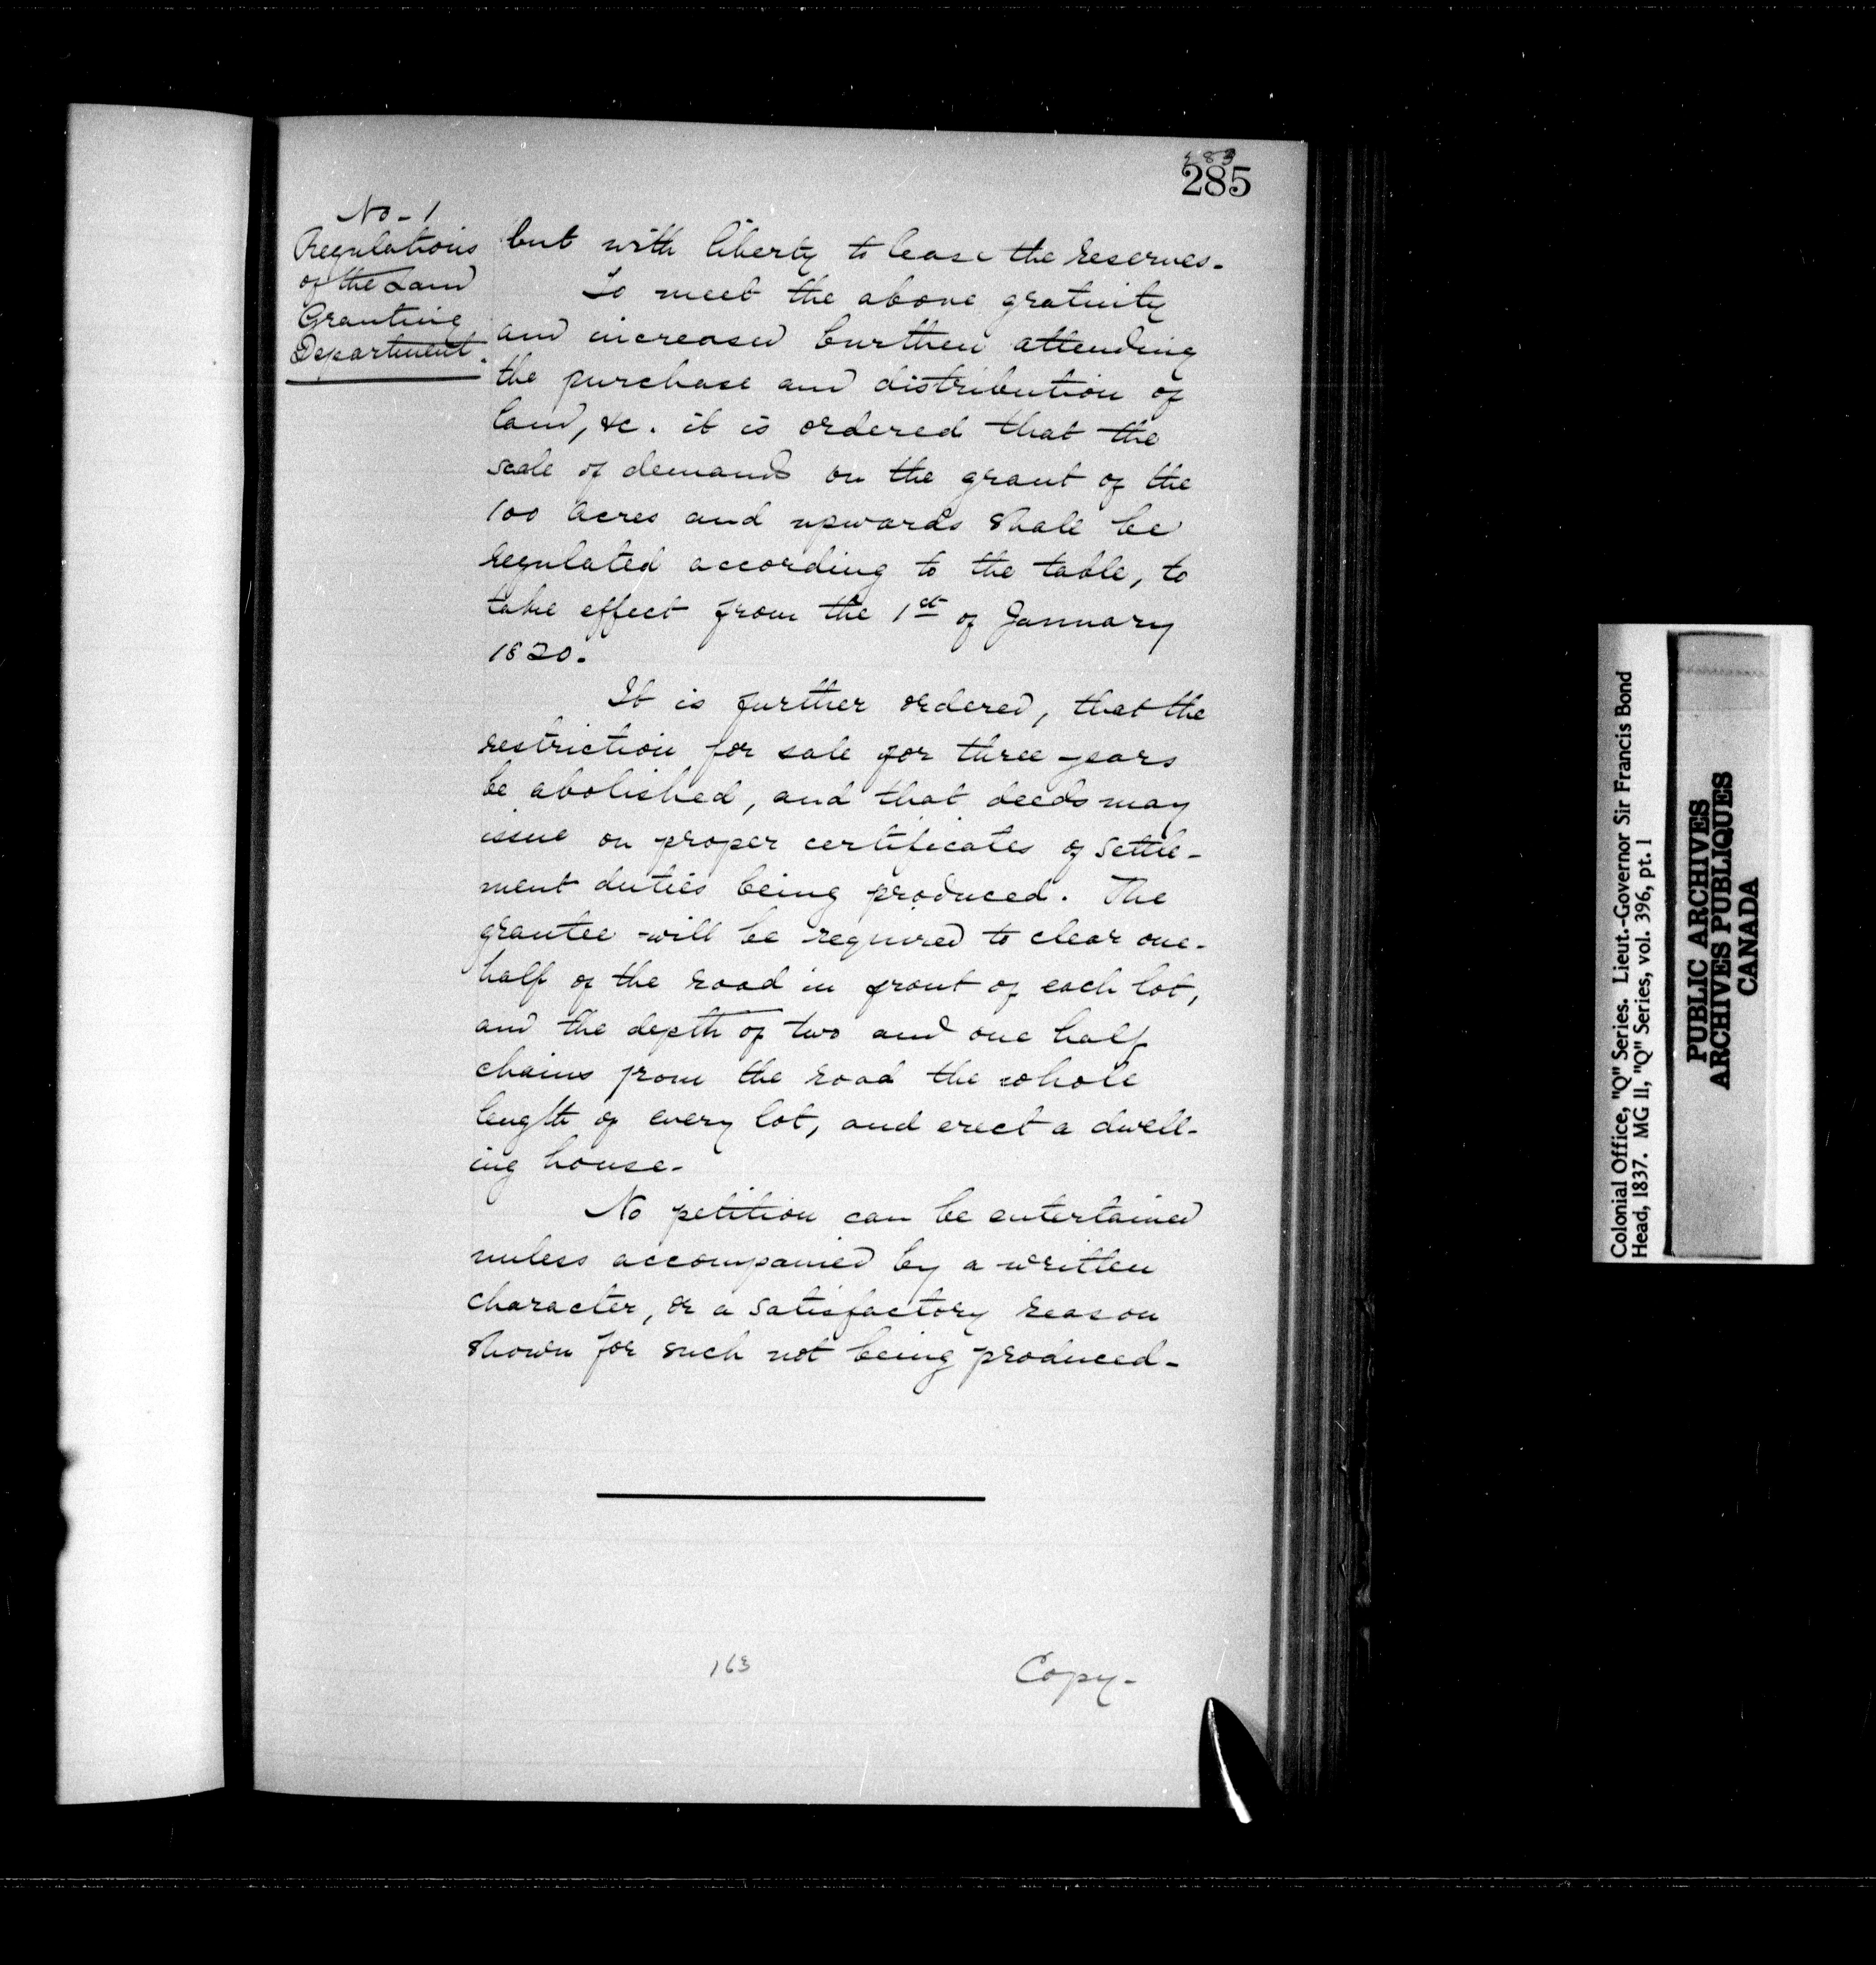 283
285
No-1
Regulations
of the Land
Granting
Department.
but with liberty to lease the reserves-
To meet the above gratuity
and increased burthen attending
the purchase and distribution of
land, &c. it is ordered that the
scale of demand on the grant of the
100 acres and upwards shall be
regulated according to the table, to
take effect from the 1st of January
1820.
It is further ordered, that the
restriction for sale for three years
be abolished, and that deeds may
issue on proper certificates of settle-
ment duties being produced. The
grantee will be required to clear one-
half of the road in front of each lot,
and the depth of two and one half
chains from the road the whole
length of every lot, and erect a dwell-
ing house-
No petition can be entertained
unless accompanied by a written
character, or a satisfactory reason
shown for such not being produced-
163
Copy-
Colonial Office, "Q" Series. Lieut.-Governor Sir Francis Bond
Head, 1837. MG 11, "Q" Series, vol. 396, pt. 1
PUBLIC ARCHIVES
ARCHIVES PUBLIQUES
CANADA